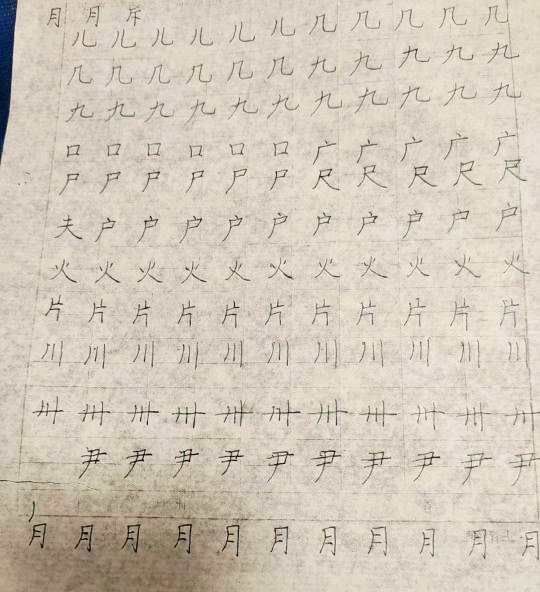 月 月 斥
儿 儿 儿 儿 儿 儿 几 几 几 几 几
几 几 几 几 几 几 九 九 九 九 九
九 九 九 九 九 九 九 九 九 九 九
口 口 口 口 口 口 广 广 广 广 广
尸 尸 尸 尸 尸 尸 尺 尺 尺 尺 尺
夫 户 户 户 户 户 户 户 户 户 户
火 火 火 火 火 火 火 火 火 火 火
片 片 片 片 片 片 片 片 片 片 片
川 川 川 川 川 川 川 川 川 川 川
卅 卅 卅 卅 卅 卅 卅 卅 卅 卅 卅
尹 尹 尹 尹 尹 尹 尹 尹 尹 尹
月 月 月 月 月 月 月 月 月 月 月